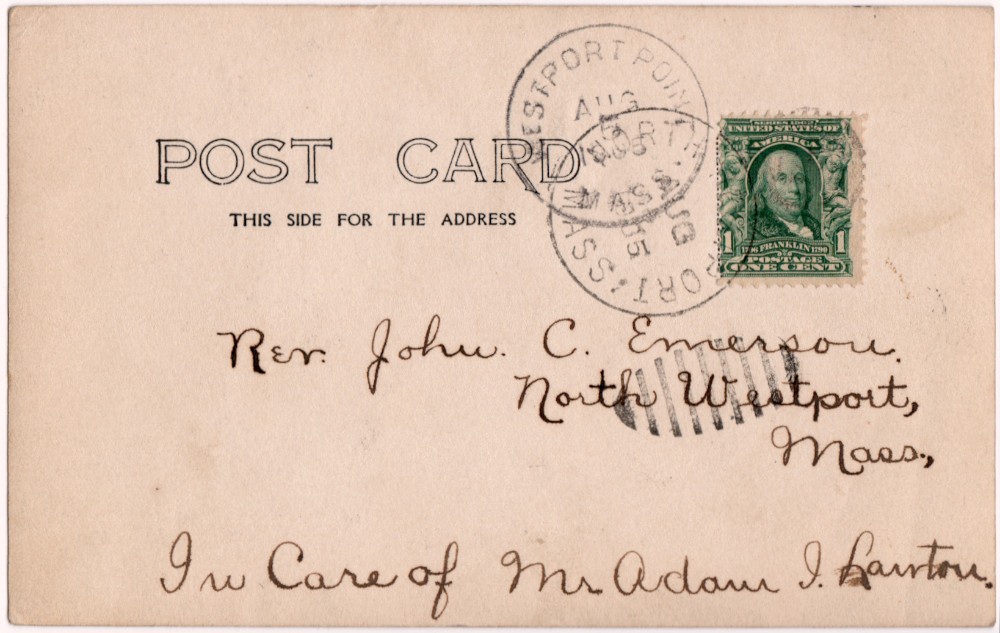 WESTPORT POINT
AUG
5
1905
MASS.
POST CARD
THIS SIDE FOR THE ADDRESS
PORT
AUG
MASS.
SERIES 1902
UNITED STATES OF
AMERICA
1 1706 FRANKLIN 1790 1
POSTAGE
ONE CENT
Rev. John. C. Emerson.
North Westport,
Mass.,
In Care of Mr. Adam I. Lawton.